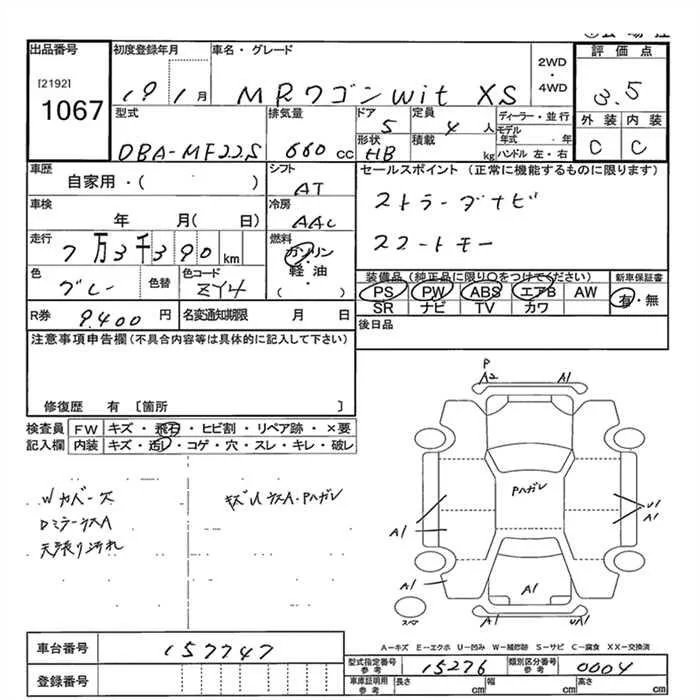 出品番号
[2192]
1067
初度登録年月
19 1月
車名・グレード
MRワゴンwit XS
2WD
・
4WD
評価点
3.5
外装 内装
C C
型式
DBA-MF22S
排気量
660 CC
ドア
5
定員
4人
形状
HB
積載
kg
ディーラー・並行
モデル年式 ・ 年
ハンドル 左・右
車歴
自家用・( )
シフト
AT
セールスポイント (正常に機能するものに限ります)
ストラーダナビ
スマートキー
車検
年 月( 日)
冷房
AAC
走行
7万3千390km
燃料
ガソリン
・
軽油
・
( )
色
グレー
色替
色コード
ZY4
装備品(純正品に限り○をつけてください)
PS PW ABS エアB AW
SR ナビ TV カワ
新車保証書
有・無
R券 9,400円
名変通知期限 月 日
後日品
注意事項申告欄(不具合内容等は具体的に記入して下さい)
修復歴 有 [箇所 ]
検査員記入欄
FW キズ・飛石・ヒビ割・リペア跡・×要
内装 キズ・汚レ・コゲ・穴・スレ・キレ・破レ
Wカバーズ
天張り汚れ
P
A2 A1
Pハガレ
A1
U1
A1
A1
A1
A1 UA1
スペア
A−キズ E−エクボ U−凹み W−補修跡 S−サビ C−腐食 XX−交換済
車台番号 157747
登録番号
型式指定番号 参考 15276
類別区分番号 参考 0004
車庫証明用 参考 長さ cm 幅 cm 高さ cm